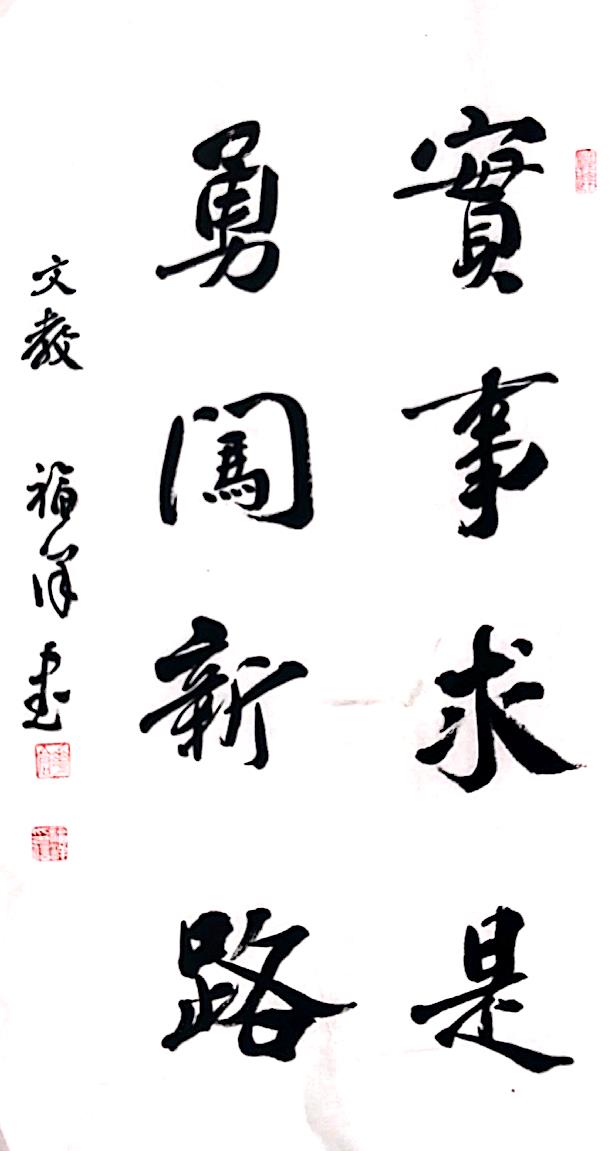 實事求是
勇闖新路
文教 福洋書